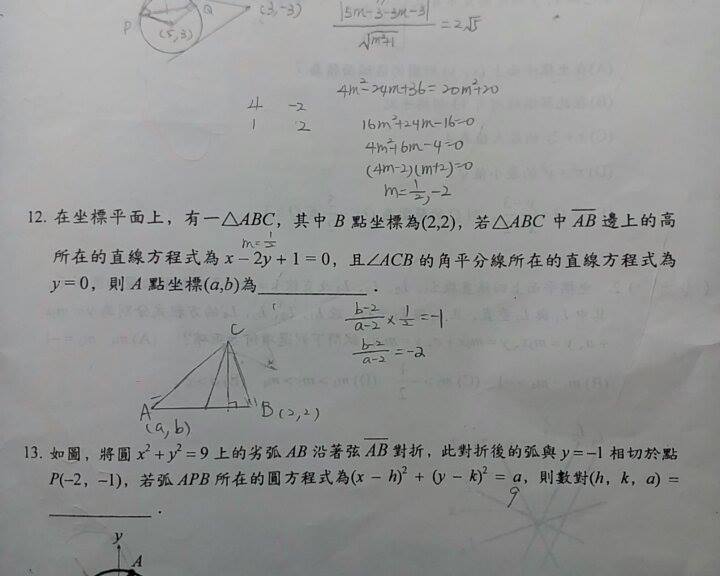 P
Q
(5,3)
(3,-3)
|5m-3-3m-3|
√m²+1
=2√5
4m²-24m+36=20m²+20
4 -2
1 2
16m²+24m-16=0
4m²+6m-4=0
(4m-2)(m+2)=0
m=1/2,-2
12. 在坐標平面上，有一△ABC，其中 B 點坐標為(2,2)，若△ABC 中 AB 邊上的高
m=1/2
所在的直線方程式為 x − 2y + 1 = 0，且∠ACB 的角平分線所在的直線方程式為
y = 0，則 A 點坐標(a,b)為____________．
b-2/a-2 × 1/2 = -1
b-2/a-2 = -2
C
A
(a,b)
B(2,2)
13. 如圖，將圓 x² + y² = 9 上的劣弧 AB 沿著弦 AB 對折，此對折後的弧與 y = −1 相切於點
P(−2, −1)，若弧 APB 所在的圓方程式為(x − h)² + (y − k)² = a，則數對(h, k, a) =
9
____________．
y
A